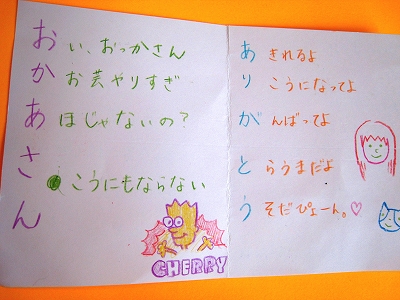 おい、おっかさん
かお芸やりすぎ
あほじゃないの？
さ
こうにもならない
ん
CHERRY
あきれるよ
りこうになってよ
がんばってよ
とらうまだよ
うそだぴょーん。♡